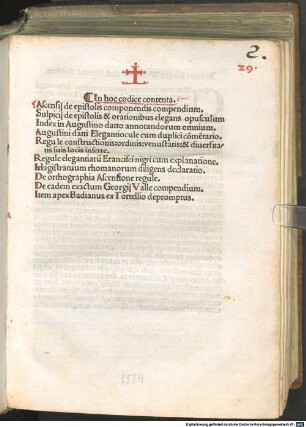 2.
29.
☩
¶In hoc codice contenta.
Ascensij de epistolis componendis compendium.
Sulpicij de epistolis & orationibus elegans opusculum
Index in Augustino datto annotandorum omnium.
Augustini dati Eleganticule cum duplici cõmētario.
Regule constructionis: ordinis: venustatis: & diuersitatis suis locis inserte.
Regule elegantiarū Francisci nigri cum explanatione.
Magistratuum rhomanorum diligens declaratio.
De orthographia Ascensiane regule.
De eadem exactum Georgij Valle compendium.
Item apex Badianus ex Tortellio depromptus.
1504